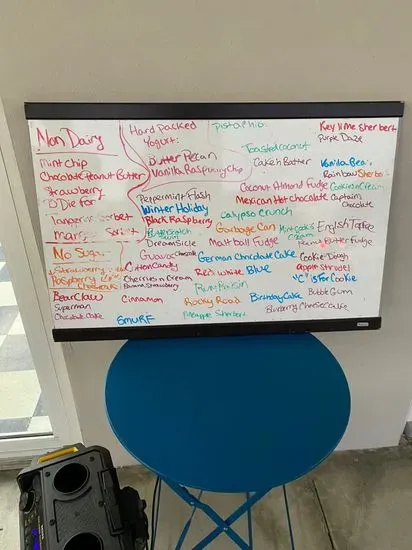 Non Dairy
Mint Chip
Chocolate Peanut Butter
Strawberry
O'Die for
Sorbet
No Sugar
Strawberry
Raspberry
Bear Claw
Superman
Chocolate Cake
Hard packed
Yogurt:
Butter Pecan
Vanilla Raspberry Chip
Peppermint Flash
Winter Holiday
Black Raspberry
Butterscotch
Dreamsicle
Guava Cheesecake
Cotton Candy
Cherries n Cream
Banana Strawberry
Cinnamon
SMURF
Pistachio
Toasted coconut
Cake n Batter
Coconut Almond Fudge
Mexican Hot Chocolate
Calypso Crunch
Garbage Can
Mint Cookies
Cream
Malt ball Fudge
German Chocolate Cake
Red white Blue
Rum Raisin
Rocky Road
Birthday Cake
Pineapple Sherbert
Blueberry Cheese Cake
Key lime Sherbert
Purple Daze
Vanilla Bean
Rainbow Sherbert
Cookies n Cream
Captain
Chocolate
English Toffee
Peanut Butter Fudge
Cookie Dough
Apple Strudel
"C" is For Cookie
Bubble Gum